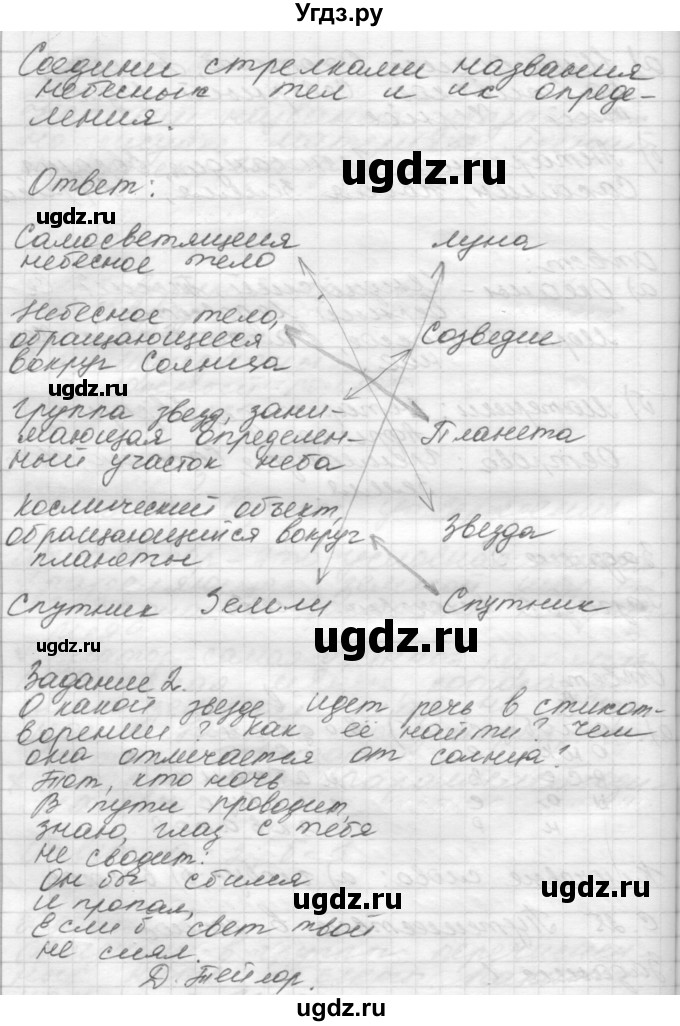 Угдз.ру
Соедини стрелками названия
небесных тел и их опреде-
ления.
ugdz.ru
Ответ:
ugdz.ru
Самосветящееся Луна
небесное тело
Небесное тело,
обращающееся Созведие
вокруг Солнца
ugdz.ru
Группа звезд, зани-
мающая определен- Планета
ный участок неба
Космический объект,
обращающийся вокруг Звезда
планеты
Спутник Земли Спутник
ugdz.ru
ugdz.ru
Задание 2.
О какой звезде идет речь в стихот-
ворении? Как её найти? Чем
она отличается от солнца?
Тот, кто ночь
В пути проводит,
Знаю, глаз с тебя
не сводит:
Он бы сбился
и пропал,
Если б свет твой
не сиял.
Д. Тейлор.
ugdz.ru
ugdz.ru
ugdz.ru